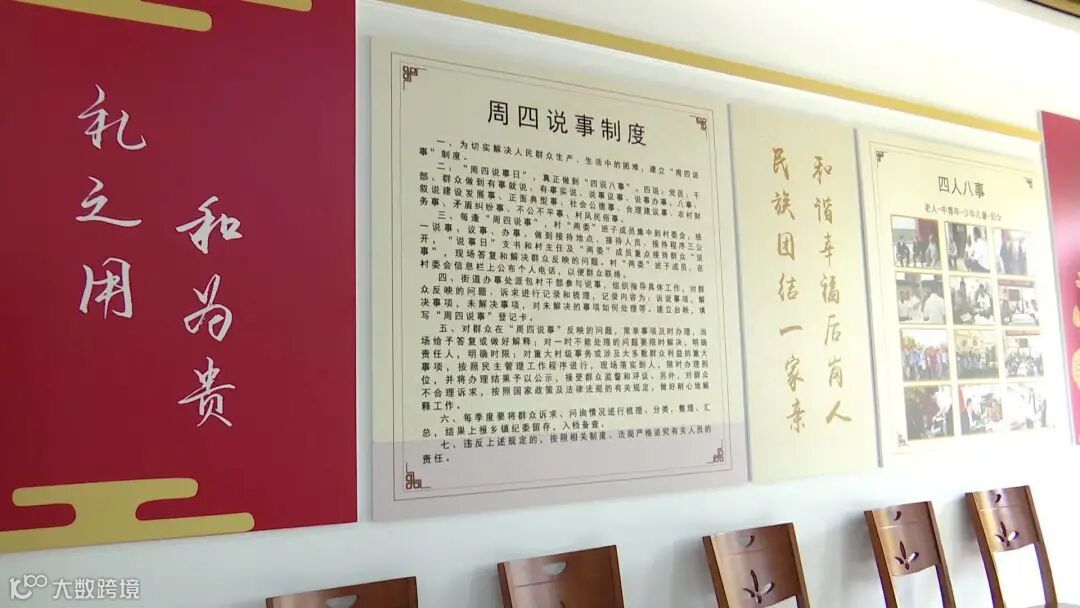 礼之用
和为贵
周四说事制度
一、为切实解决人民群众生产、生活中的困难，建立“周四说
事”制度。
二、“周四说事日”，真正做到“四说八事”。四说：党员、干
部、群众做到有事就说、有事实说、说事议事、说事办事。八事：
叙说建设发展事、正面典型事、社会公德事、合理建议事、农村财
务事、矛盾纠纷事、不公不平事、村风民俗事。
三、每逢“周四说事”，村“两委”班子成员集中到村委会，统
一说事，议事、办事。做到接待地点、接待人员、接待程序三公
开，“说事日”支书和村主任及“两委”成员重点接待群众“说
事”，现场答复和解决群众反映的问题。村“两委”班子成员，在
村委会信息栏上公布个人电话，以便群众联络。
四、街道办事处派包村干部参与说事，组织指导具体工作，对群
众反映的问题、诉求进行记录和梳理，记录内容为：诉说事项，解
决事项，未解决事项，对未解决的事项如何处理等。建立台帐，填
写“周四说事”登记卡。
五、对群众在“周四说事”反映的问题，简单事项及时办理，当
场给予答复或做好解释；对一时不能处理的问题要限时解决，明确
责任人，明确时限；对重大村级事务或涉及大多数群众利益的重大
事项，按照民主管理工作程序进行，现场落实到人，限时办理到
位，并将办理结果予以公示，接受群众监督和评议。另外，对群众
不合理诉求，按照国家政策及法律法规的有关规定，做好耐心地解
释工作。
六、每季度要将群众诉求、问询情况进行梳理、分类，整理、汇
总，结果上报乡镇纪委留存，入档备查。
七、违反上述规定的，按照相关制度、法规严格追究有关人员的
责任。
和谐幸福后岗人
民族团结一家亲
四人八事
老人·中青年·少年儿童·妇女
大数跨境